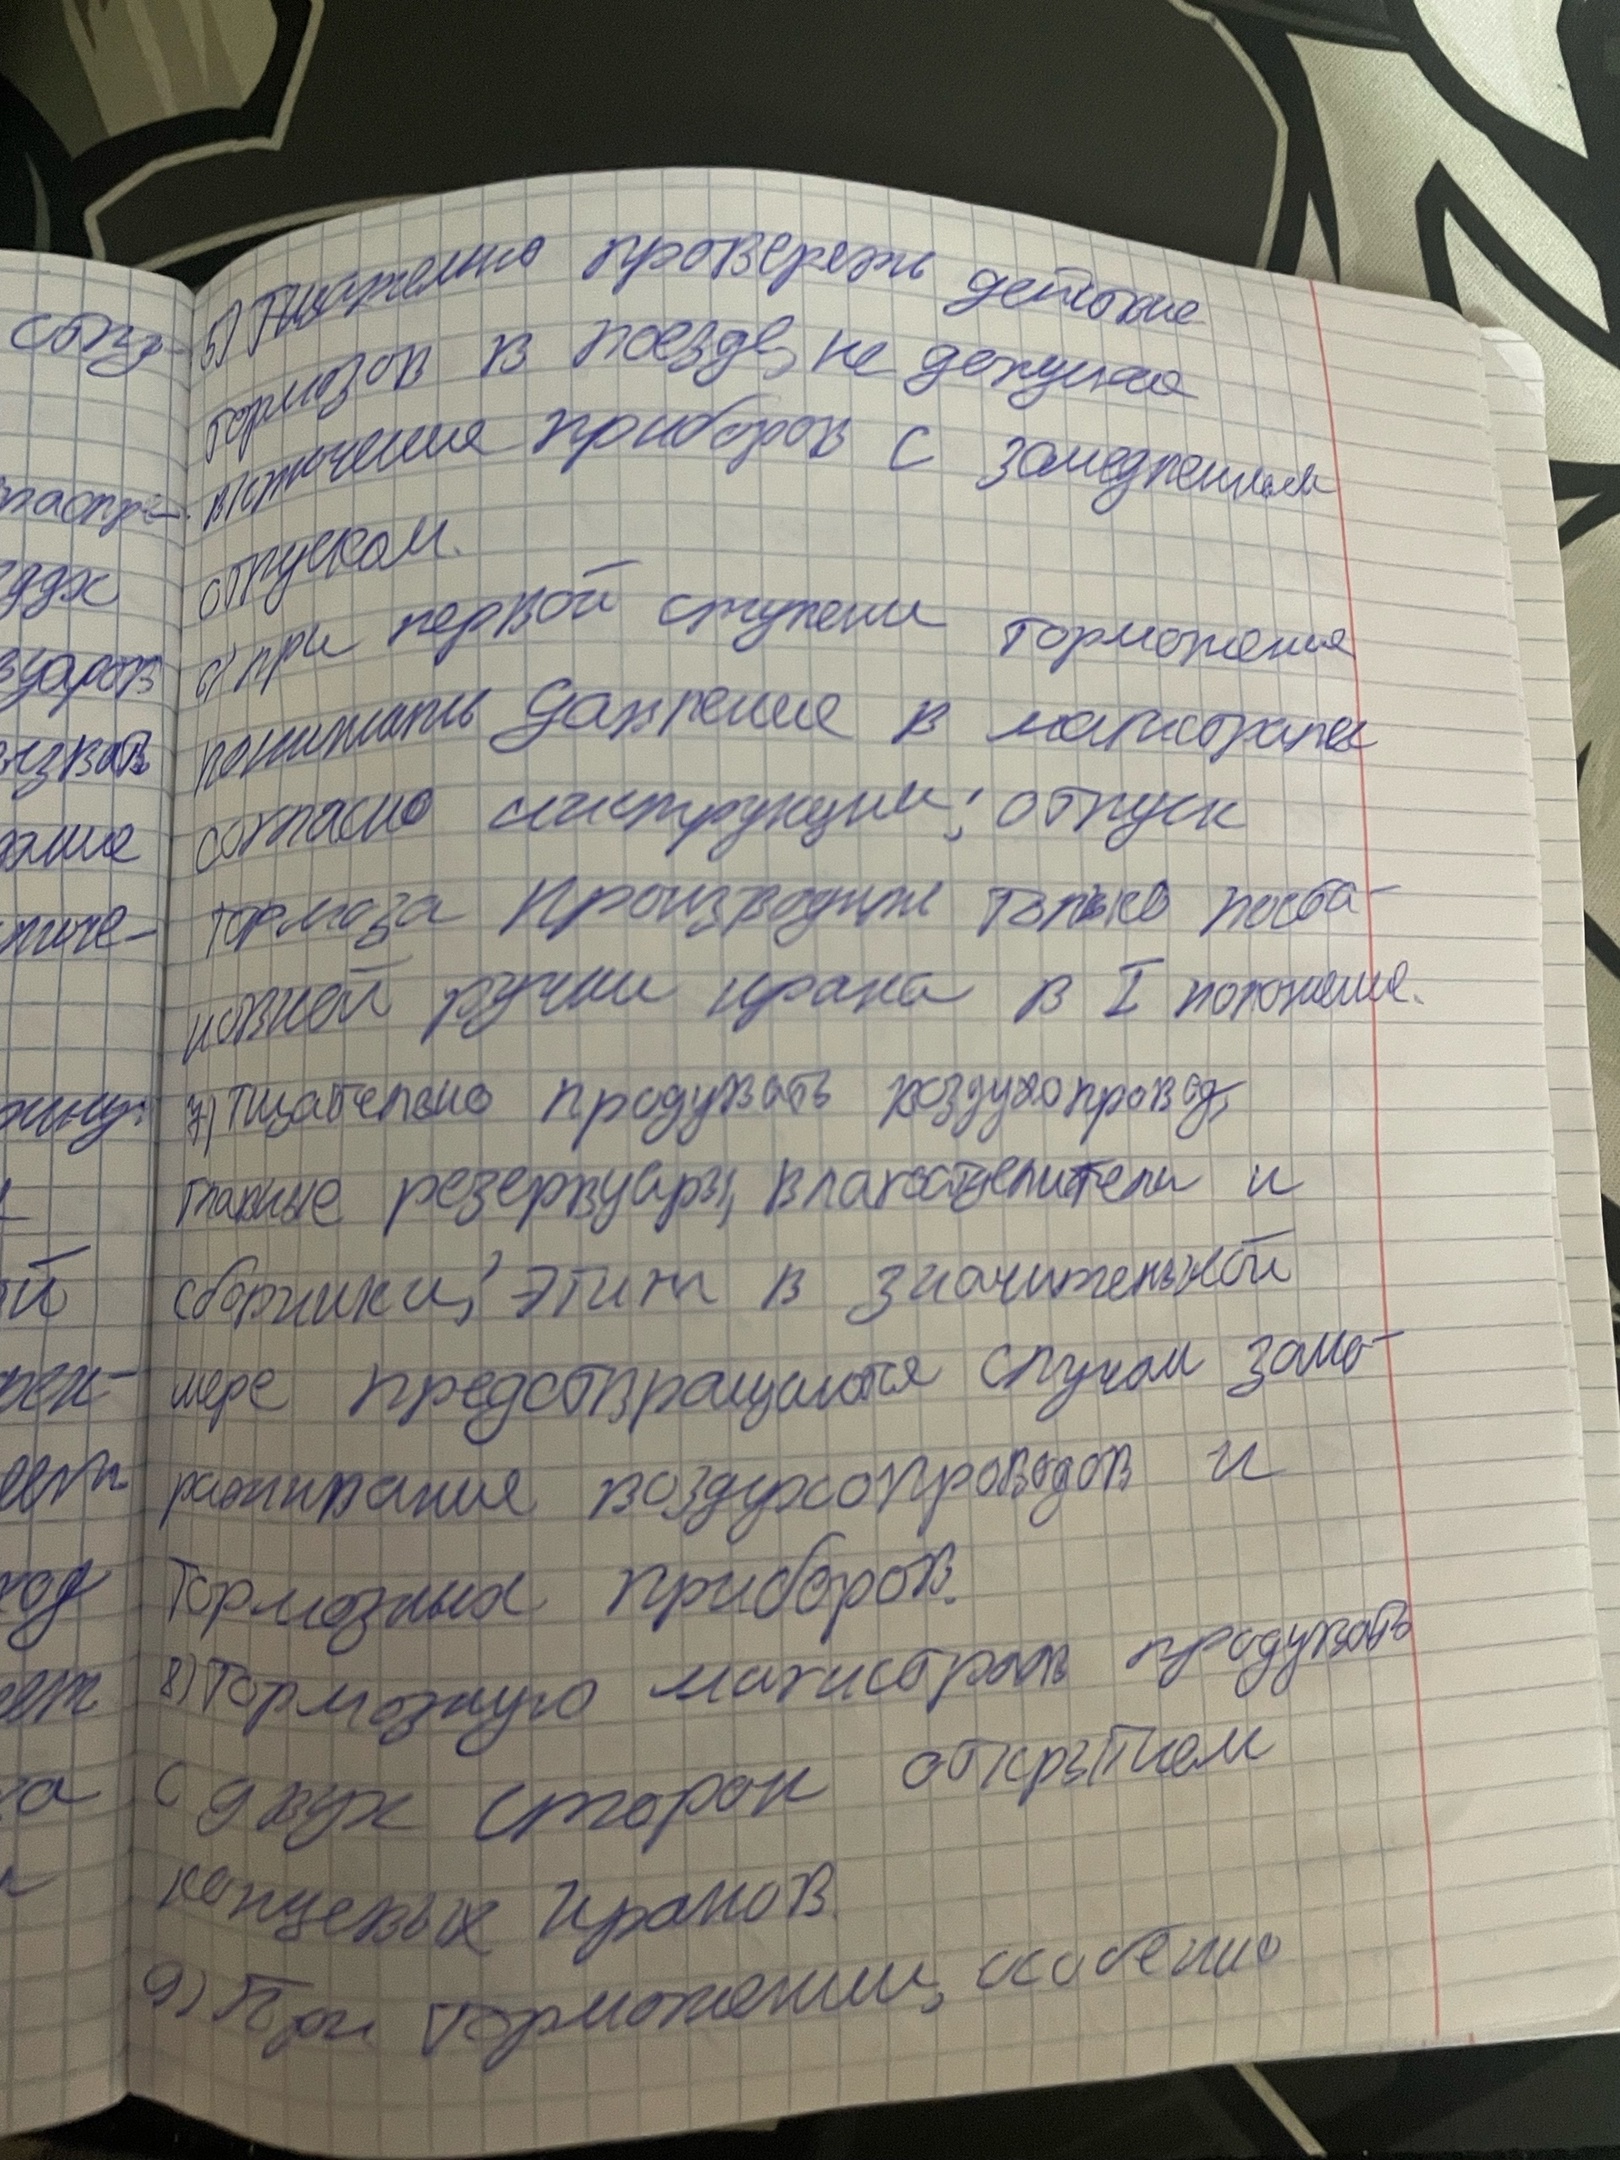 созд-
распре-
здух
звуаров
вызвать
дание
ой
ход
за
5) Тщательно проверять действие
тормозов в поезде, не допуская
включения приборов с замедленным
отпуском.
6) при первой ступени торможения
понижать давление в магистрали
согласно инструкции; отпуск
тормоза производить только поста-
новкой ручки крана в I положение.
7) тщательно продувать воздухопровод,
главные резервуары, влагоотделители и
сборники; этим в значительной
мере предотвращаются случаи замо-
раживания воздухопроводов и
тормозных приборов.
8) Тормозную магистраль продувать
с двух сторон открытием
концевых кранов.
9) При торможении, особенно